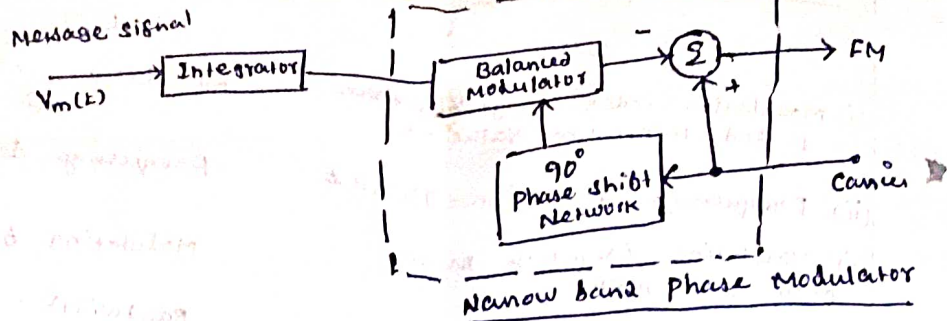 Message signal
Vm(t)
Integrator
Balanced
Modulator
-
Σ
+
FM
90°
Phase shift
Network
Carrier
Narrow band Phase Modulator